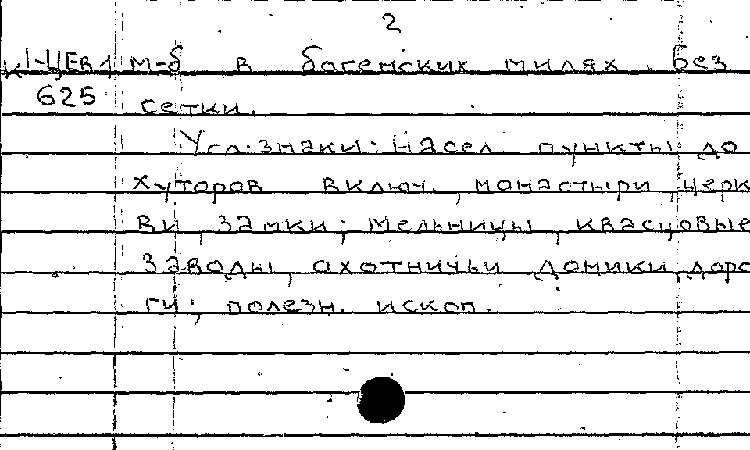 2
К1-ЦЕв1 м-б в богемских милях. Без
625 сетки.
Усл. знаки: насел. пункты до
хуторов включ., монастыри, церк
ви, замки; мельницы, квасцовые
заводы, охотничьи домики, доро
ги; полезн. ископ.